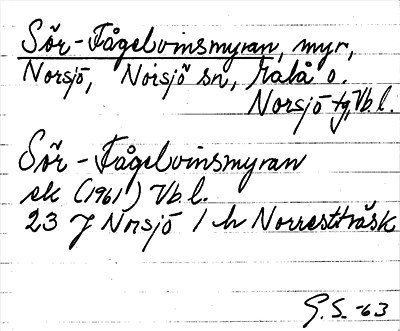 Sör-Fågelvinsmyran, myr,
Norsjö, Norsjö sn, Malå o.
Norsjö tg, Vb.l.
Sör-Fågelvinsmyran
ek (1961) Vb.l.
23 J Norsjö 1 h Norrestträsk
G.S. -63